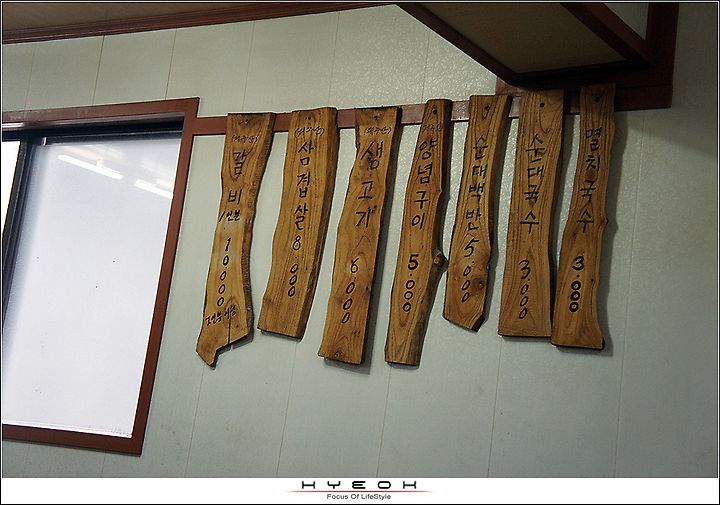 (제주산)
갈비
1인분
10000
2인분 이상
(제주산)
삼겹살
8000
(제주산)
생고기
6.000
양념구이
5.000
순대백반
5.000
순대국수
3.000
멸치국수
3.000
HYEOK
Focus Of LifeStyle